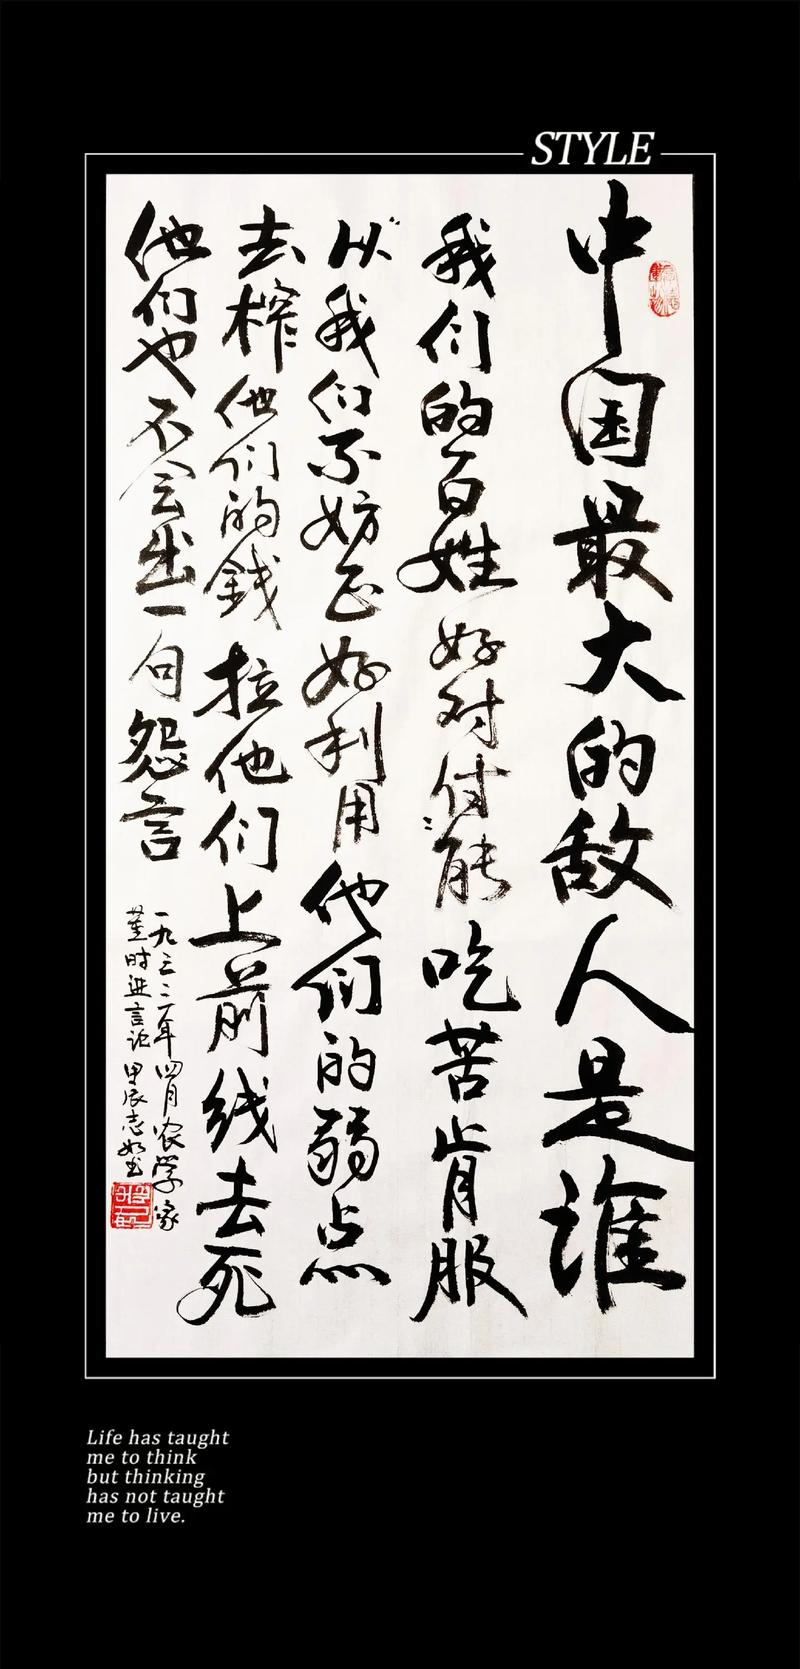 STYLE
中国最大的敌人是谁
我们的百姓好对付能吃苦肯服
从我们不妨正好利用他们的弱点
去榨他们的錢拉他们上前线去死
他们也不会出一句怨言
一九三二年四月农学家
董时进言论 甲辰志如书
Life has taught
me to think
but thinking
has not taught
me to live.